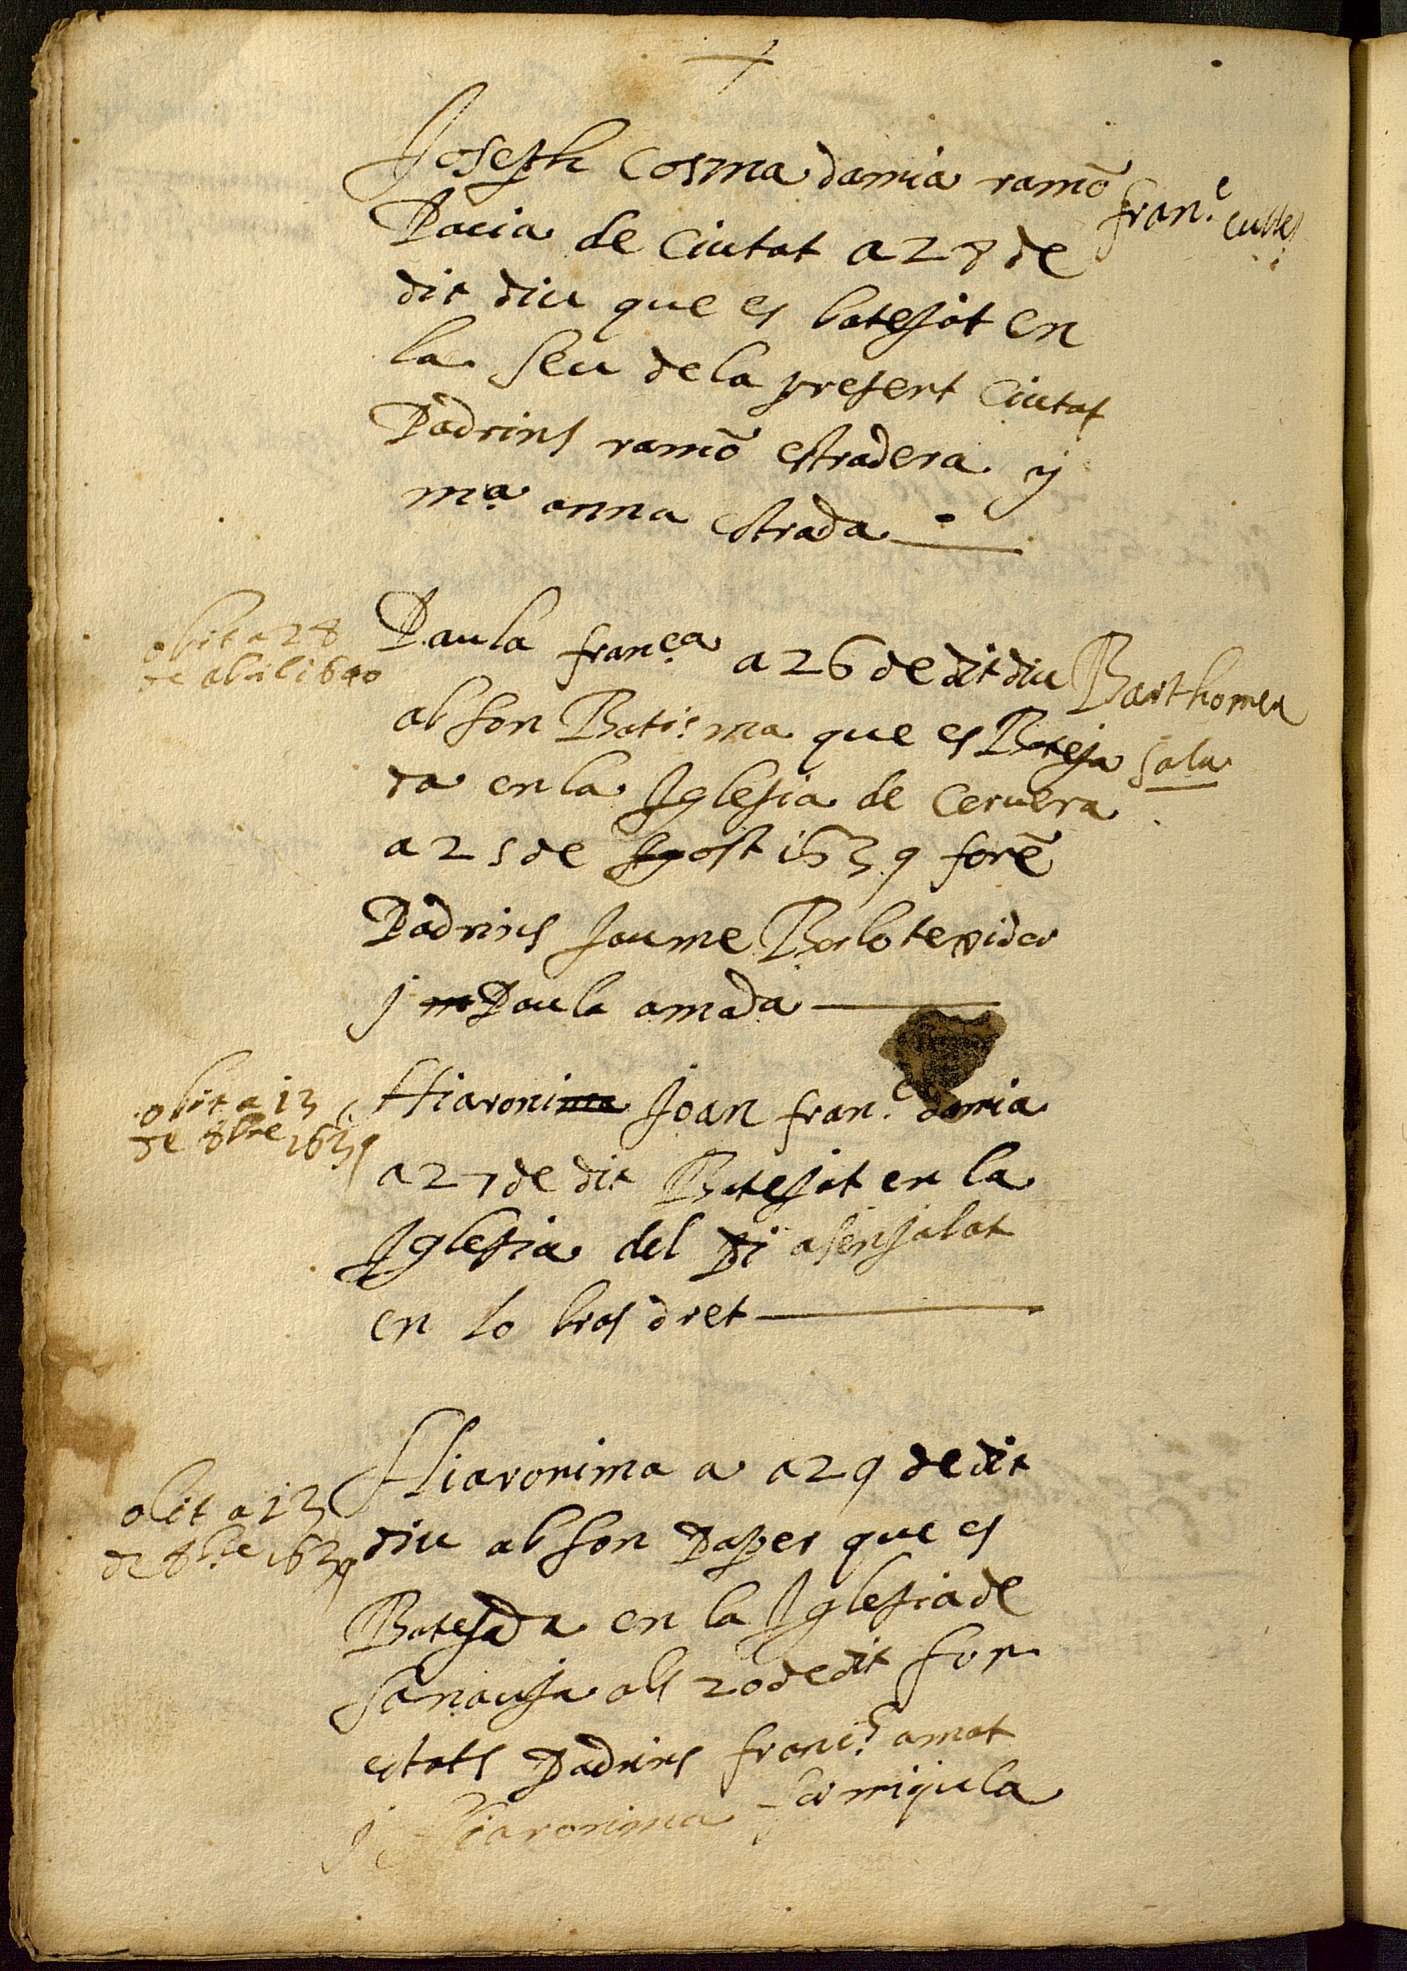 Joseph Cosma damia ramõ
Pacia de Ciutat a 28 de
fran.c
dit diu que es batejat en
la Seu dela present Ciutat
Padrins ramõ estradera y
m.a anna estrada
obit a 28
de abril 1640
Paula fran.ca a 26 de dit diu
Barthomeu
Sala
ab son Batisma que es Bateja
da en la Iglesia de Ceruera
a 25 de Agost 1639 forẽ
Padrins Jaume texidor
j Paula amada
obit a 13
de 8bre 1639
Hiaroni Joan fran.c damia
a 27 de dit Batejat en la
Iglesia del Pi asenjalat
en lo bras dret
obit a 13
de 8bre 1639
Hiaronima a a 29 de dit
diu ab son Paper que es
Batejada en la Iglesia de
Sanauja als 20 de dit for
estats Padrins franc.h amat
j Hiaronima